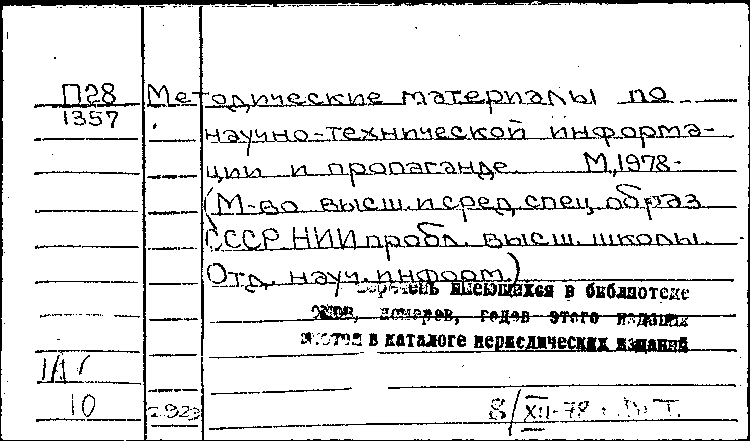 П28 Методические материалы по
1357 научно-технической информа-
ции и пропаганде М.,1978-
(М-во высш. и сред. спец. образ
СССР. НИИ пробл. высш. школы.
Отд. науч. информ.)
имеющихся в библиотеке
номеров, годов этого издания
в каталоге периодических изданий
10
8/XII-78